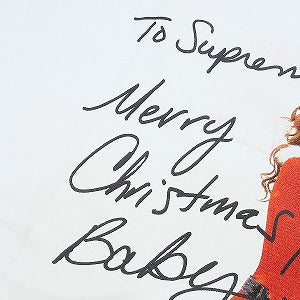 To Suprem
Merry
Christmas
Baby